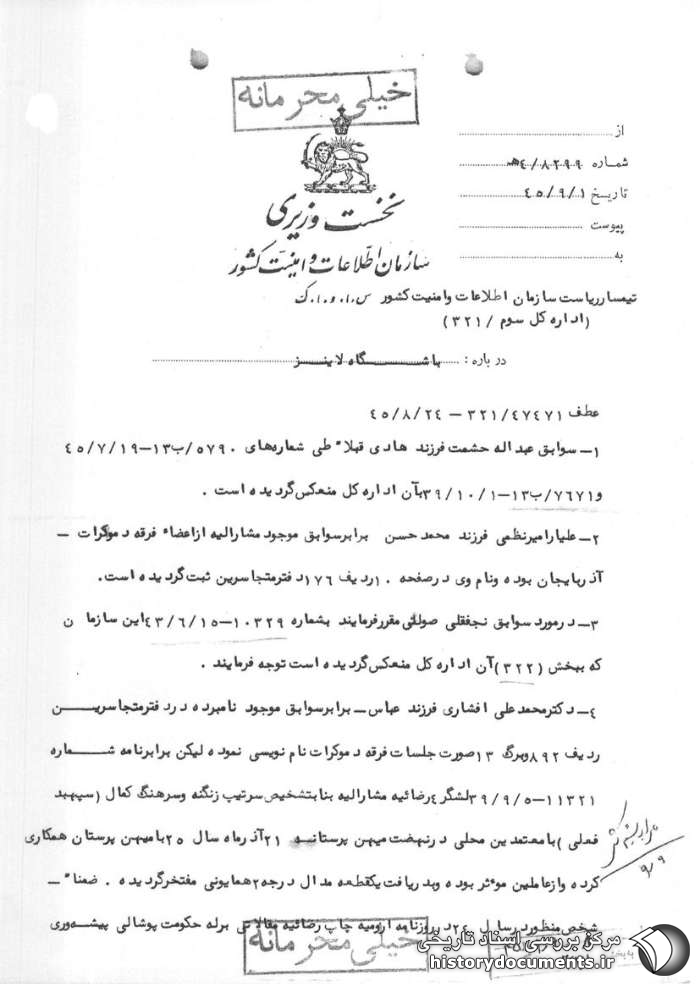 خیلی محرمانه
از
شماره ۸۲۹۹/۴ﻫ
تاریخ ۴۵/۹/۱
پیوست
به
نخست وزیری
سازمان اطلاعات و امنیت کشور
تیمسار ریاست سازمان اطلاعات وامنیت کشور س.ا.و.ا.ک
(اداره کل سوم /۳۲۱)
درباره: باشگاه لاینز
عطف ۳۲۱/۴۷۴۷۱ – ۴۵/۸/۲۴
۱– سوابق عبداله حشمت فرزند هادی قبلاً طی شماره‌های ۵۷۹۰/ب۱۳–۴۵/۷/۱۹
و۷۶۷۱/ب۱۳–۳۹/۱۰/۱بآن اداره کل منعکس گردیده است .
۲– علیارامیرنظمی فرزند محمد حسن برابرسوابق موجود مشارالیه ازاعضاء فرقه دموکرات –
آذربایجان بوده ونام وی درصفحه ۱۰ردیف ۱۷۶دفترمتجاسرین ثبت گردیده است.
۳– درمورد سوابق نجفقلی صولتی مقررفرمایند بشماره ۱۰۳۲۹–۴۳/۶/۱۵این سازمان
که ببخش (۳۲۲)آن اداره کل منعکس گردیده است توجه فرمایند .
۴– دکترمحمدعلی افشاری فرزند عباس– برابرسوابق موجود نامبرده دردفترمتجاسرین
ردیف ۸۹۲وبرگ ۱۳صورت جلسات فرقه دموکرات نام نویسی نموده لیکن برابرنامه شماره
۱۱۳۲۱–۳۹/۹/۵لشگر۴رضائیه مشارالیه بنابتشخیص سرتیپ زنگنه وسرهنگ کمال (سپهبد
فعلی )بامعتمدین محلی درنهضت میهن پرستانه ۲۱آذرماه سال ۲۵بامیهن پرستان همکاری
کرده وازعاملین موءثر بوده وبدریافت یکقطعه مدال درجه۲همایونی مفتخرگردیده . ضمناً –
شخص منظور درسال ۲۴درروزنامه ارومیه چاپ رضائیه مقالاتی برله حکومت پوشالی پیشه‌وری
۹/۹
خیلی محرمانه
مرکز بررسی اسناد تاریخی
historydocuments.ir